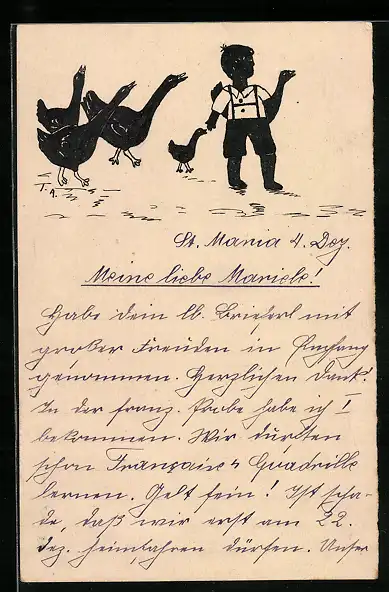 T. A.
St. Maria 4. Dez.
Meine liebe Mariele!
Habe dein lb. Brieferl mit
großer Freuden in Empfang
genommen. Herzlichen Dank.
In der franz. Probe habe ich I
bekommen. Wir durften
schon Française u Quadrille
lernen. Gelt fein! Ist scha-
de, daß wir erst am 22.
Dez. heimfahren dürfen. Unser